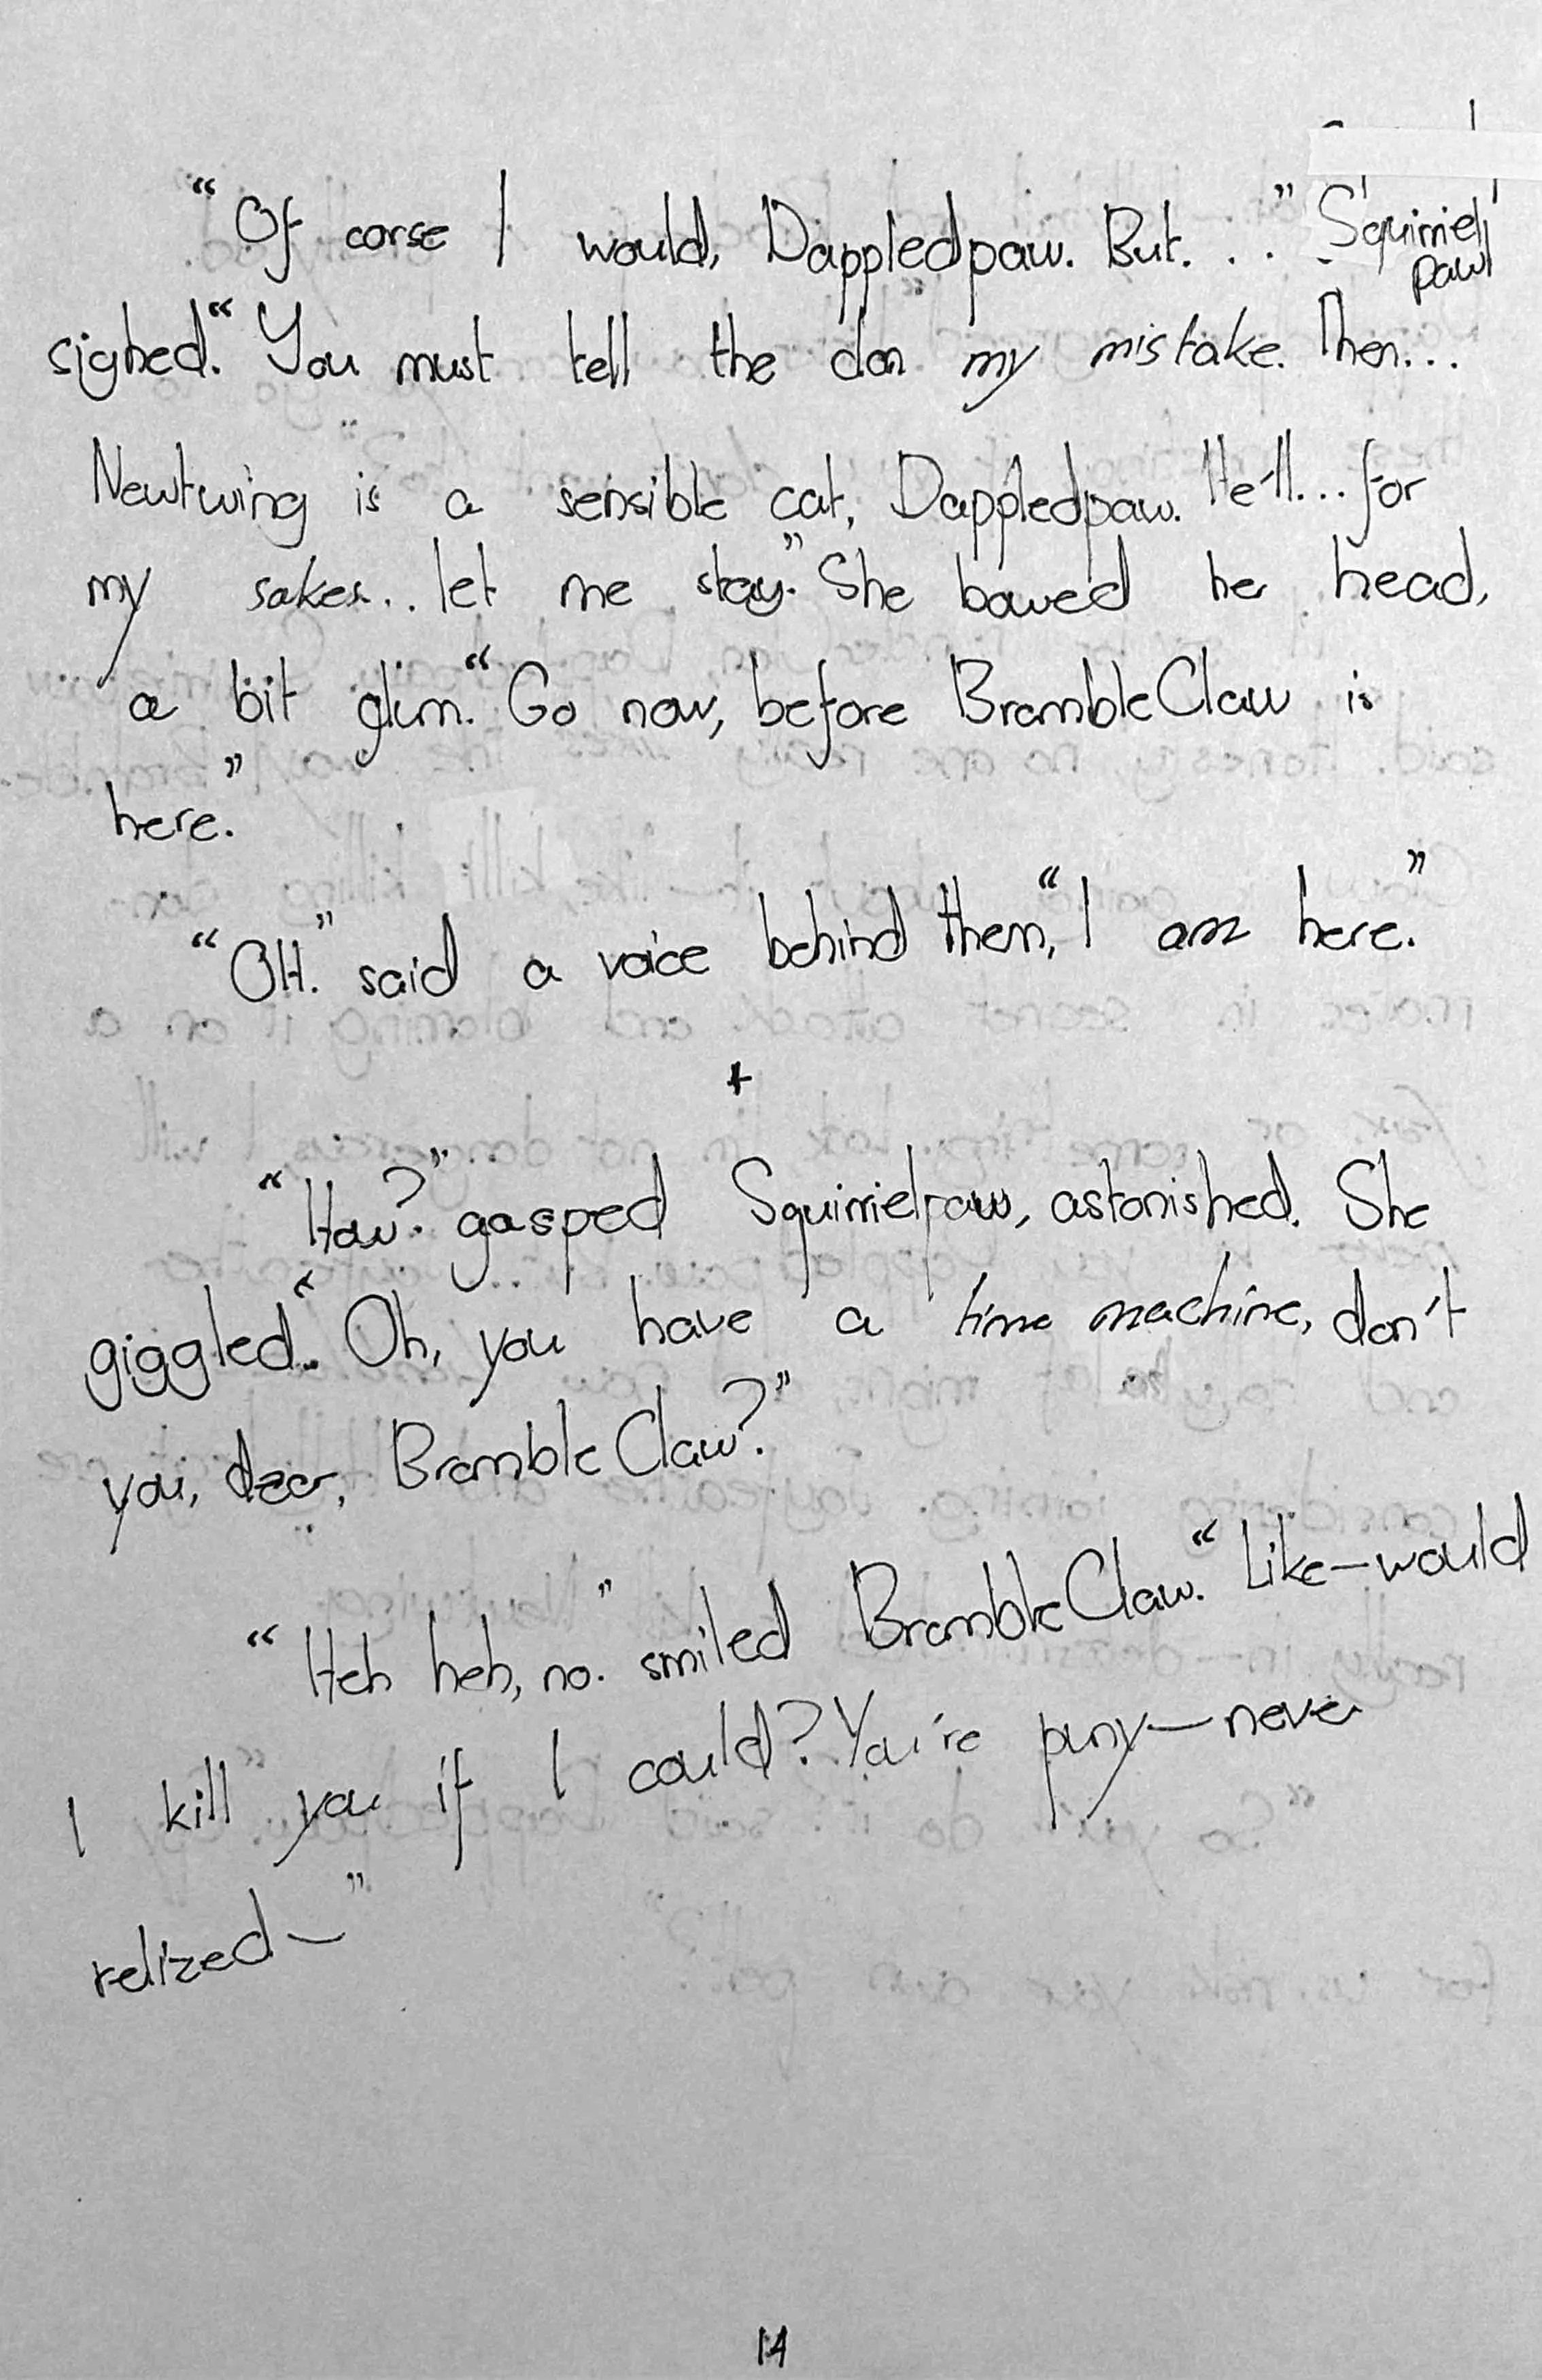 "Of corse I would, Dappledpaw. But. . ." Squirriel
paw
sighed. "You must tell the clan my mistake. Then...
Newtwing is a sensible cat, Dappledpaw. He'll... for
my sakes... let me stay." She bowed her head,
a bit glim. "Go now, before BrambleClaw is
here."
"OH." said a voice behind them, "I am here."
+
"How?" gasped Squirrielpaw, astonished. She
giggled. "Oh, you have a time machine, don't
you, dear, BrambleClaw?"
"Heh heh, no." smiled BrambleClaw. "Like—would
I kill you if I could? You're puny—never
relized—"
14